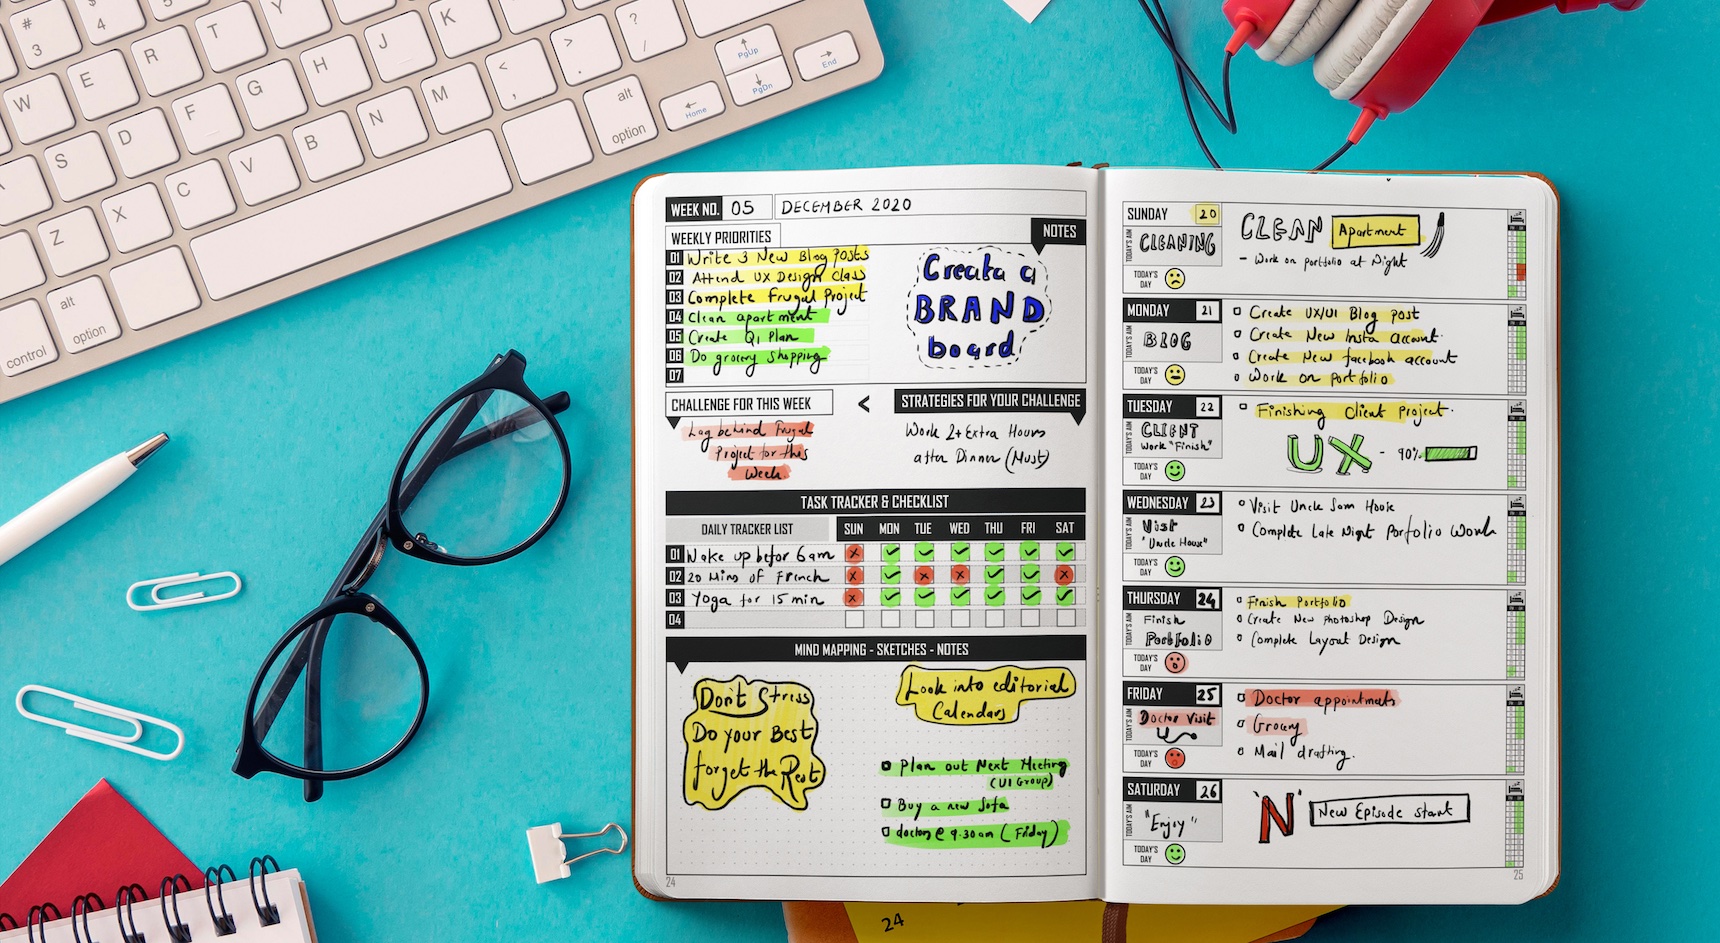 # 3
$ 4
W
E
R
T
Y
S
D
F
G
H
J
K
Z
X
C
V
B
N
M
<
,
>
.
?
/
control
alt
option
alt
option
PgUp
Home
PgDn
End
WEEK NO. 05 DECEMBER 2020
WEEKLY PRIORITIES
01 Write 3 New Blog Posts
02 Attend UX Design Class
03 Complete Frugal Project
04 Clean apartment
05 Create Q1 Plan
06 Do grocery shopping
07
NOTES
Create a
BRAND
board
CHALLENGE FOR THIS WEEK
Lag behind Frugal
Project for this
Week
<
STRATEGIES FOR YOUR CHALLENGE
Work 2+ Extra Hours
after Dinner (Must)
TASK TRACKER & CHECKLIST
DAILY TRACKER LIST SUN MON TUE WED THU FRI SAT
01 Wake up befor 6am
02 20 Mins of French
03 Yoga for 15 min
04
MIND MAPPING - SKETCHES - NOTES
Don't Stress
Do your Best
forget the Rest
Look into editorial
Calendars
Plan out Next Meeting
(UI Group)
Buy a new Sofa
doctor @ 9.30am (Friday)
24
SUNDAY 20
TODAY'S AIM
CLEANING
TODAY'S
DAY
CLEAN Apartment
- Work on portfolio at Night
MONDAY 21
TODAY'S AIM
BLOG
TODAY'S
DAY
Create UX/UI Blog post
Create New Insta account
Create New facebook account
Work on portfolio
TUESDAY 22
TODAY'S AIM
CLIENT
Work "Finish"
TODAY'S
DAY
Finishing Client project.
UX - 90%
WEDNESDAY 23
TODAY'S AIM
Visit
"Uncle House"
TODAY'S
DAY
Visit Uncle Sam House
Complete Late Night Portfolio Work
THURSDAY 24
TODAY'S AIM
Finish
Portfolio
TODAY'S
DAY
Finish Portfolio
Create New Photoshop Design
Complete Layout Design
FRIDAY 25
TODAY'S AIM
Doctor Visit
TODAY'S
DAY
Doctor appointments
Grocery
Mail drafting.
SATURDAY 26
TODAY'S AIM
"Enjoy"
TODAY'S
DAY
'N' New Episode start
25
24